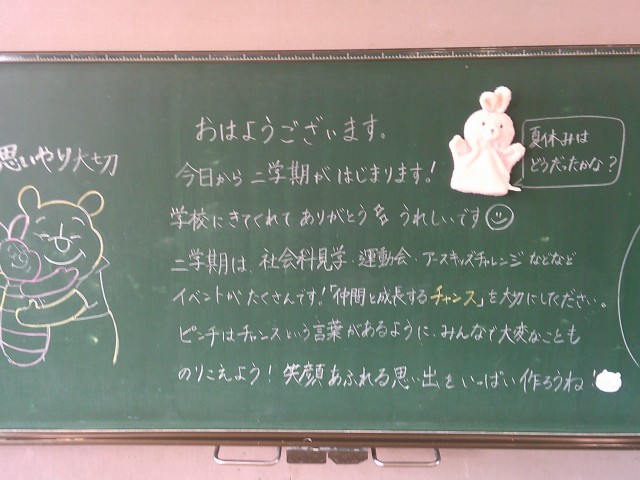 思いやり大切
おはようございます。
今日から二学期がはじまります!
学校にきてくれてありがとう うれしいです
二学期は、社会科見学・運動会・アースキッズチャレンジなどなど
イベントがたくさんです!「仲間と成長するチャンス」を大切にしてください。
ピンチはチャンスという言葉があるように、みんなで大変なことも
のりこえよう!笑顔あふれる思い出をいっぱい作ろうね!
夏休みは
どうだったかな?